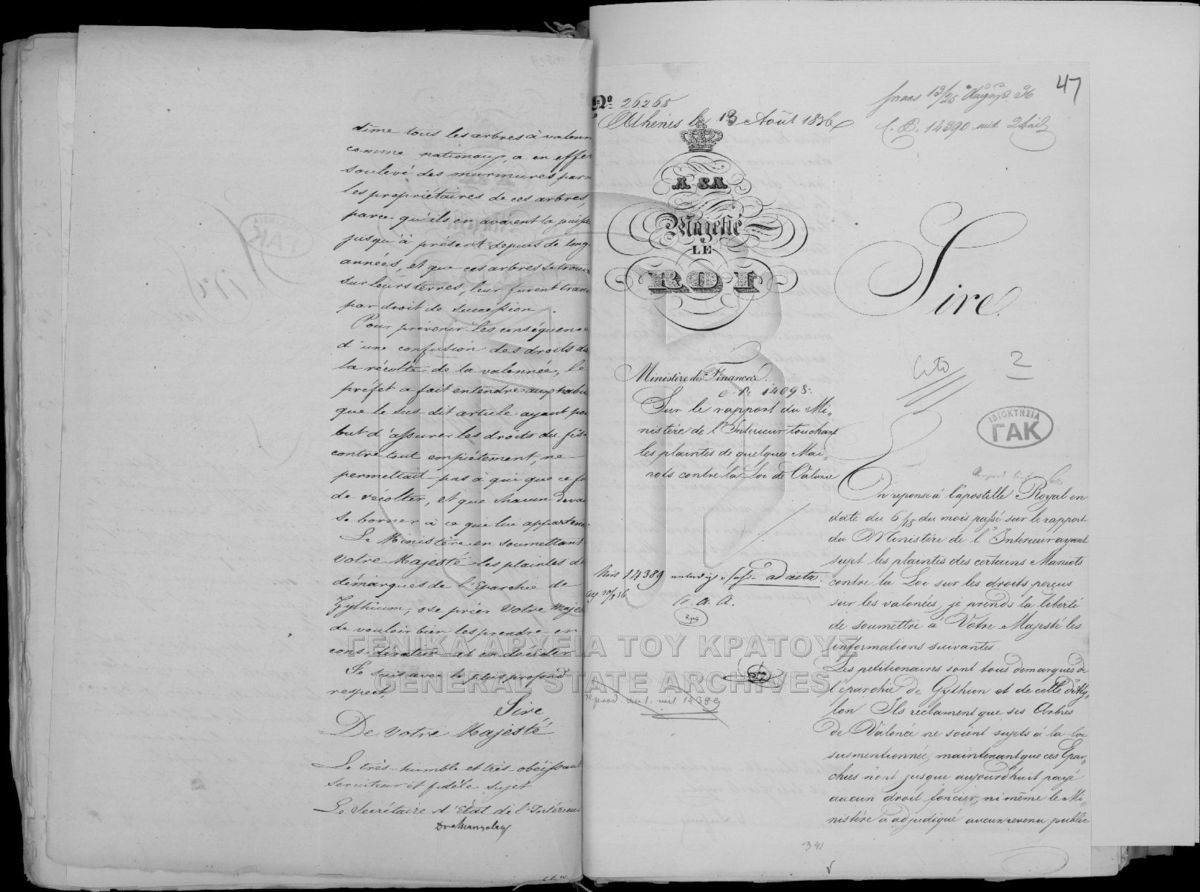 time tous les arbres à valonnée
comme nationaux, a en effet
soulevé des murmures parmi
les propriétaires de ces arbres
parce qu'ils en avaient la
jusqu'à présent depuis de longues
années, et que ces arbres se trouv
sur leurs terres, leur furent trans
par droit de succession.
Pour prévenir les conséquences
d'une confusion des droits de
la récolte de la valonnée, le
préfet a fait entendre
que le sus-dit article ayant pour
but d'assurer les droits du fisc
contre tout empiétement, ne
permettait pas à qui que ce fut
de récolter, et que chacun devait
se borner à ce que lui appartenait
Le Ministère en soumettant
Votre Majesté les plaintes des
démarques de l'Eparchie de
Gythium, ose prier Votre Majesté
de vouloir bien les prendre en
considération et en décider.
Je suis avec le plus profond
respect
Sire
De Votre Majesté
Le très-humble et très-obéissant
serviteur et fidèle sujet
Le Secrétaire d'Etat de l'Intérieur
47
No. 26265
Athènes le 13 Août 1836
13/25
14390
A SA
Majesté
LE
ROI
Sire
Cito
2
ΙΔΙΟΚΤΗΣΙΑ
ΓΑΚ
Ministère des Finances.
14098.
Sur le rapport du Mi-
nistère de l'Interieur touchant
les plaintes de quelques Mai-
nots contre la Loi de Valonée
14389
ad acta.
En reponse à l'apostille Royal en
date du 6/18 du mois passé sur le rapport
du Ministère de l'Interieur ayant
sujet les plaintes des certains Maniots
contre la Loi sur les droits perçus
sur les valonées, je prends la liberté
de soumettre à Votre Majesté les
informations suivantes
Les petitionaires sont tous demarques de
l'eparchie de Gythion et de celle
Ils réclament que ses Arbres
de Valonée ne soient sujets à la loi
susmentionnée, maintenant que ces Epar-
chies n'ont jusque aujourdhuit payé
aucun droit foncier, ni même le Mi-
nistère a adjudiqué aucun revenu public
ΓΕΝΙΚΑ ΑΡΧΕΙΑ ΤΟΥ ΚΡΑΤΟΥΣ
GENERAL STATE ARCHIVES
14389
341